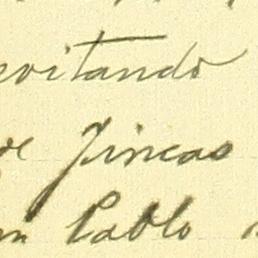 evitando
de Fincas
Pablo